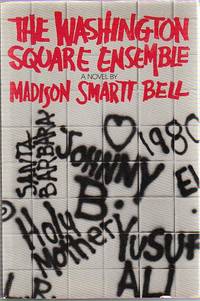 THE WASHINGTON
SQUARE ENSEMBLE
A NOVEL BY
MADISON SMARTT BELL
SANTA
BARBARA
♡ 1980
JOHNNY
B.
EI
Holy
Mother
YUSUF
ALI
L.R.